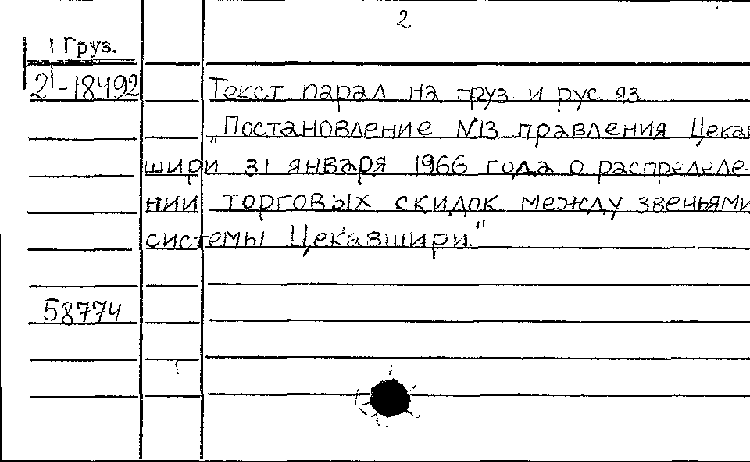 2
Груз.
2-18492
Текст парал на груз и рус яз
„Постановление №13 правления Цекав
шири 31 января 1966 года о распределе-
нии торговых скидок между звеньями
системы Цекавшири"
58774